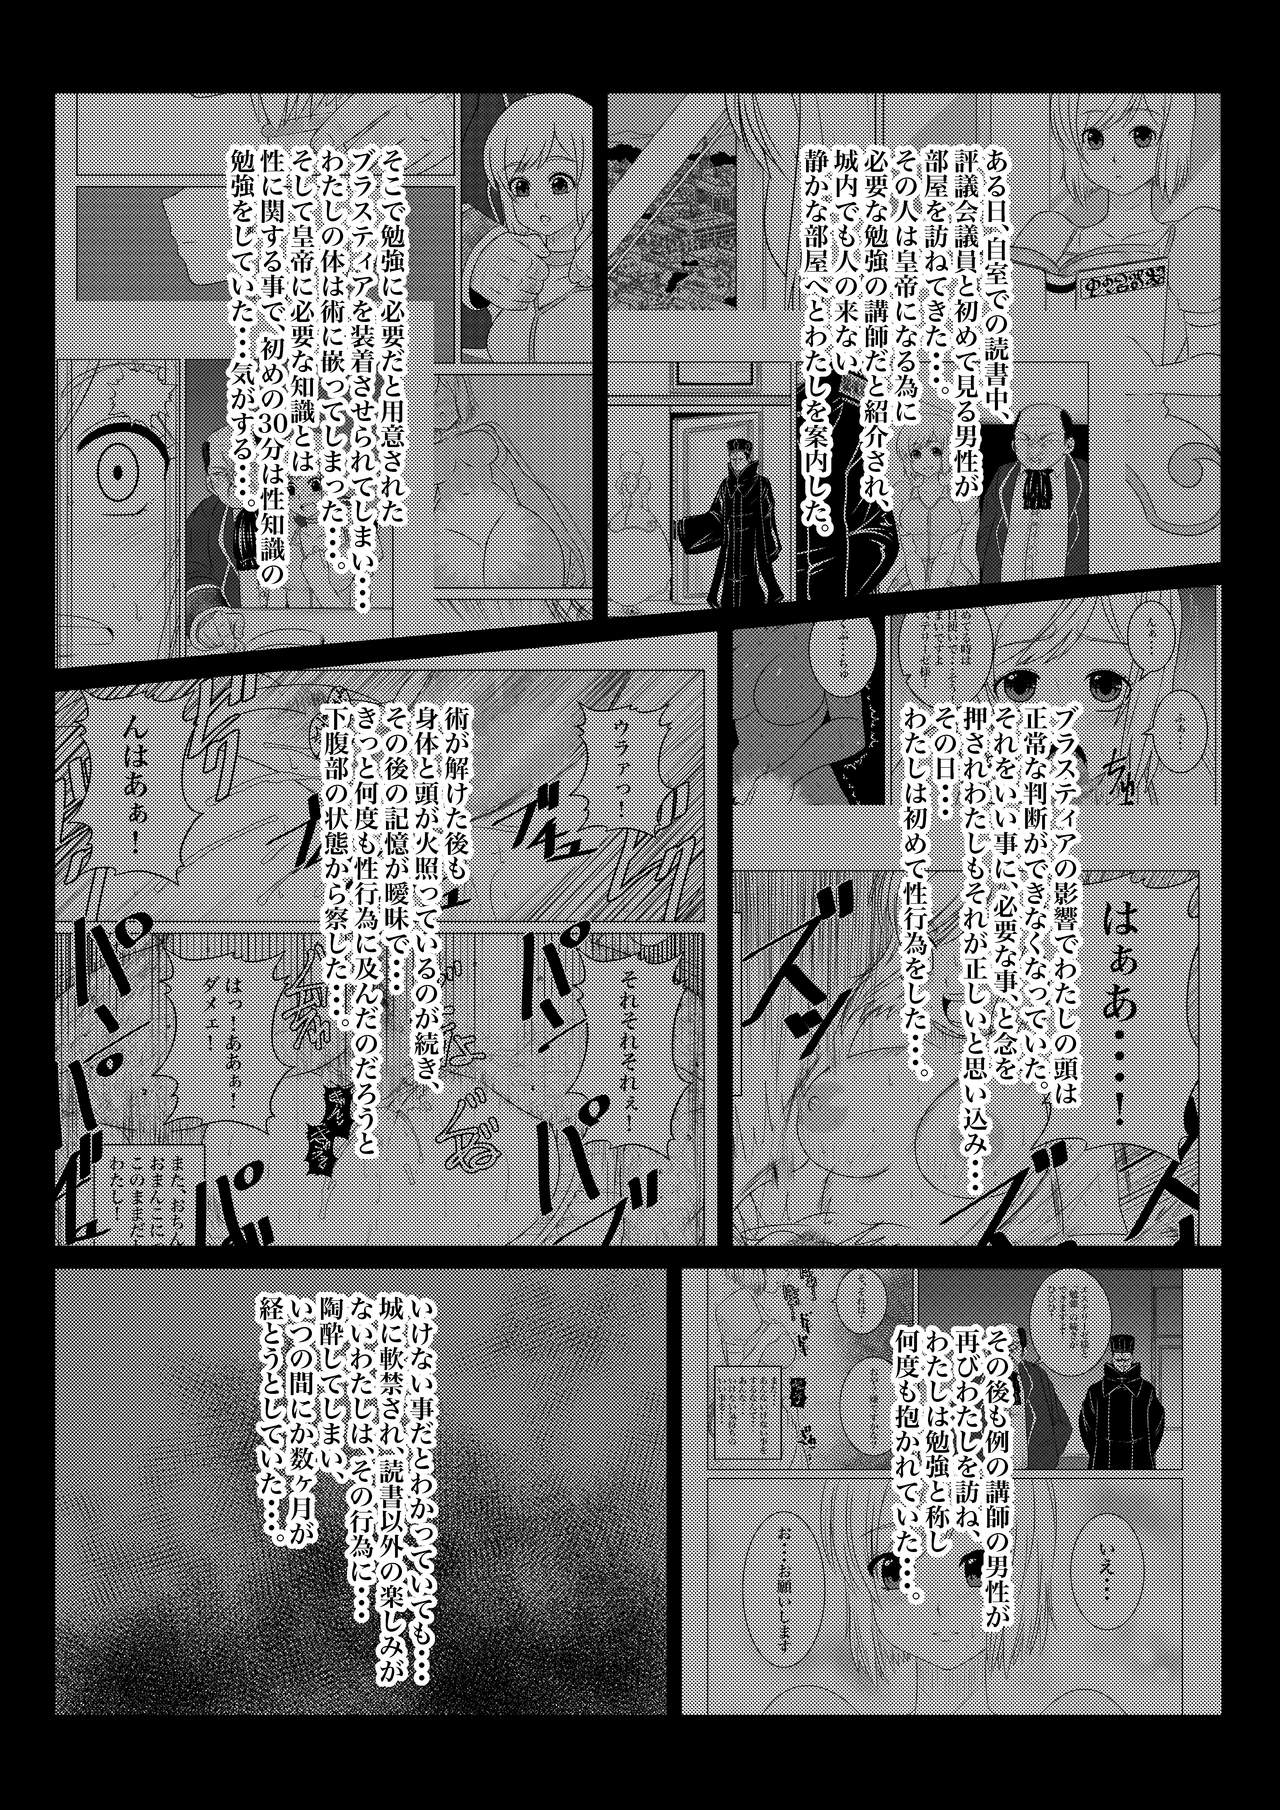 ある日、自室での読書中、
評議会議員と初めて見る男性が
部屋を訪ねてきた…。
その人は皇帝になる為に
必要な勉強の講師だと紹介され、
城内でも人の来ない
静かな部屋へとわたしを案内した。
そこで勉強に必要だと用意された
ブラスティアを装着させられてしまい…
わたしの体は術に嵌ってしまった…。
そして皇帝に必要な知識とは
性に関する事で、初めの30分は性知識の
勉強をしていた…気がする…。
んぁ…
ふぁ…
ちゅ
ブラスティアの影響でわたしの頭は
正常な判断ができなくなっていた。
それをいい事に、必要な事、と念を
押されわたしもそれが正しいと思い込み…
その日…
わたしは初めて性行為をした…。
はぁあ…！
ウラァっ！
んはあぁ！
術が解けた後も
身体と頭が火照っているのが続き、
その後の記憶が曖昧で…
きっと何度も性行為に及んだのだろうと
下腹部の状態から察した…。
それそれそれぇ！
はっ！ああぁ！
ダメェ！
また、おちん
おまんこに
このままだ
わたし！
その後も例の講師の男性が
再びわたしを訪ね、
わたしは勉強と称し
何度も抱かれていた…。
いえ…
お、お願いします
いけない事だとわかっていても…
城に軟禁され、読書以外の楽しみが
ないわたしは、その行為に…
陶酔してしまい、
いつの間にか数ヶ月が
経とうとしていた…。